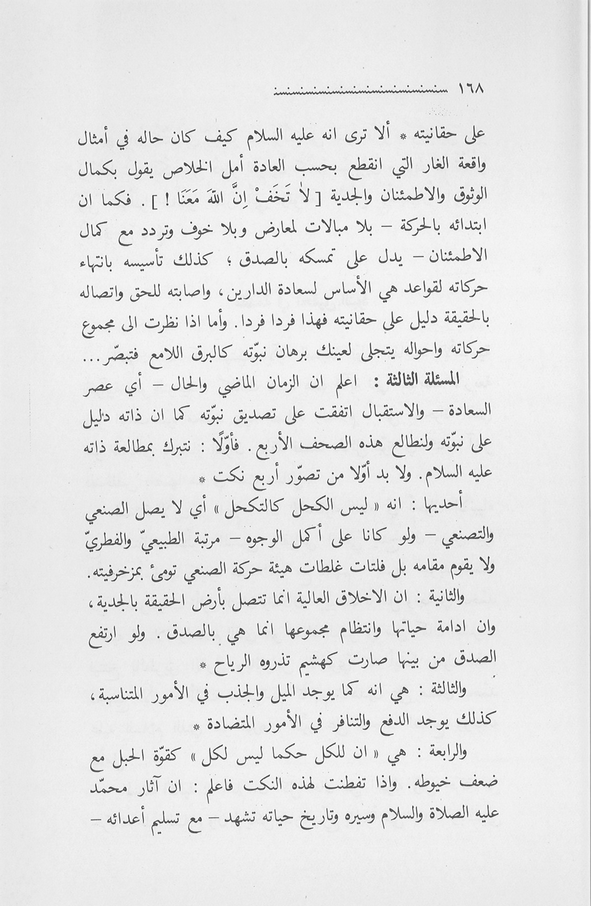 ١٦٨
على حقانيته * ألا ترى انه عليه السلام كيف كان حاله في أمثال
واقعة الغار التي انقطع بحسب العادة أمل الخلاص يقول بكمال
الوثوق والاطمئنان والجدية [ لاَ تَخَفْ اِنَّ اللهَ مَعَنَا ! ] . فكما ان
ابتدائه بالحركة – بلا مبالات لمعارض وبلا خوف وتردد مع كمال
الاطمئنان – يدل على تمسكه بالصدق ؛ كذلك تأسيسه بانتهاء
حركاته لقواعد هي الأساس لسعادة الدارين، واصابته للحق واتصاله
بالحقيقة دليل على حقانيته فهذا فردا فردا. وأما اذا نظرت الى مجموع
حركاته واحواله يتجلى لعينك برهان نبوّته كالبرق اللامع فتبصّر...
المسئلة الثالثة : اعلم ان الزمان الماضي والحال – أي عصر
السعادة – والاستقبال اتفقت على تصديق نبوّته كما ان ذاته دليل
على نبوّته ولنطالع هذه الصحف الأربع. فأوّلًا : نتبرك بمطالعة ذاته
عليه السلام. ولا بد أوّلا من تصوّر أربع نكت *
أحديها : انه « ليس الكحل كالتكحل » أي لا يصل الصنعي
والتصنعي – ولو كانا على أكمل الوجوه – مرتبة الطبيعيّ والفطريّ
ولا يقوم مقامه بل فلتات غلطات هيئة حركة الصنعي تومئ بمزخرفيته.
والثانية : ان الاخلاق العالية انما تتصل بأرض الحقيقة بالجدية،
وان ادامة حياتها وانتظام مجموعها انما هي بالصدق. ولو ارتفع
الصدق من بينها صارت كهشيم تذروه الرياح *
والثالثة : هي انه كما يوجد الميل والجذب في الأمور المتناسبة،
كذلك يوجد الدفع والتنافر في الأمور المتضادة *
والرابعة : هي « ان للكل حكما ليس لكل » كقوّة الحبل مع
ضعف خيوطه. واذا تفطنت لهذه النكت فاعلم : ان آثار محمّد
عليه الصلاة والسلام وسيره وتاريخ حياته تشهد – مع تسليم أعدائه –